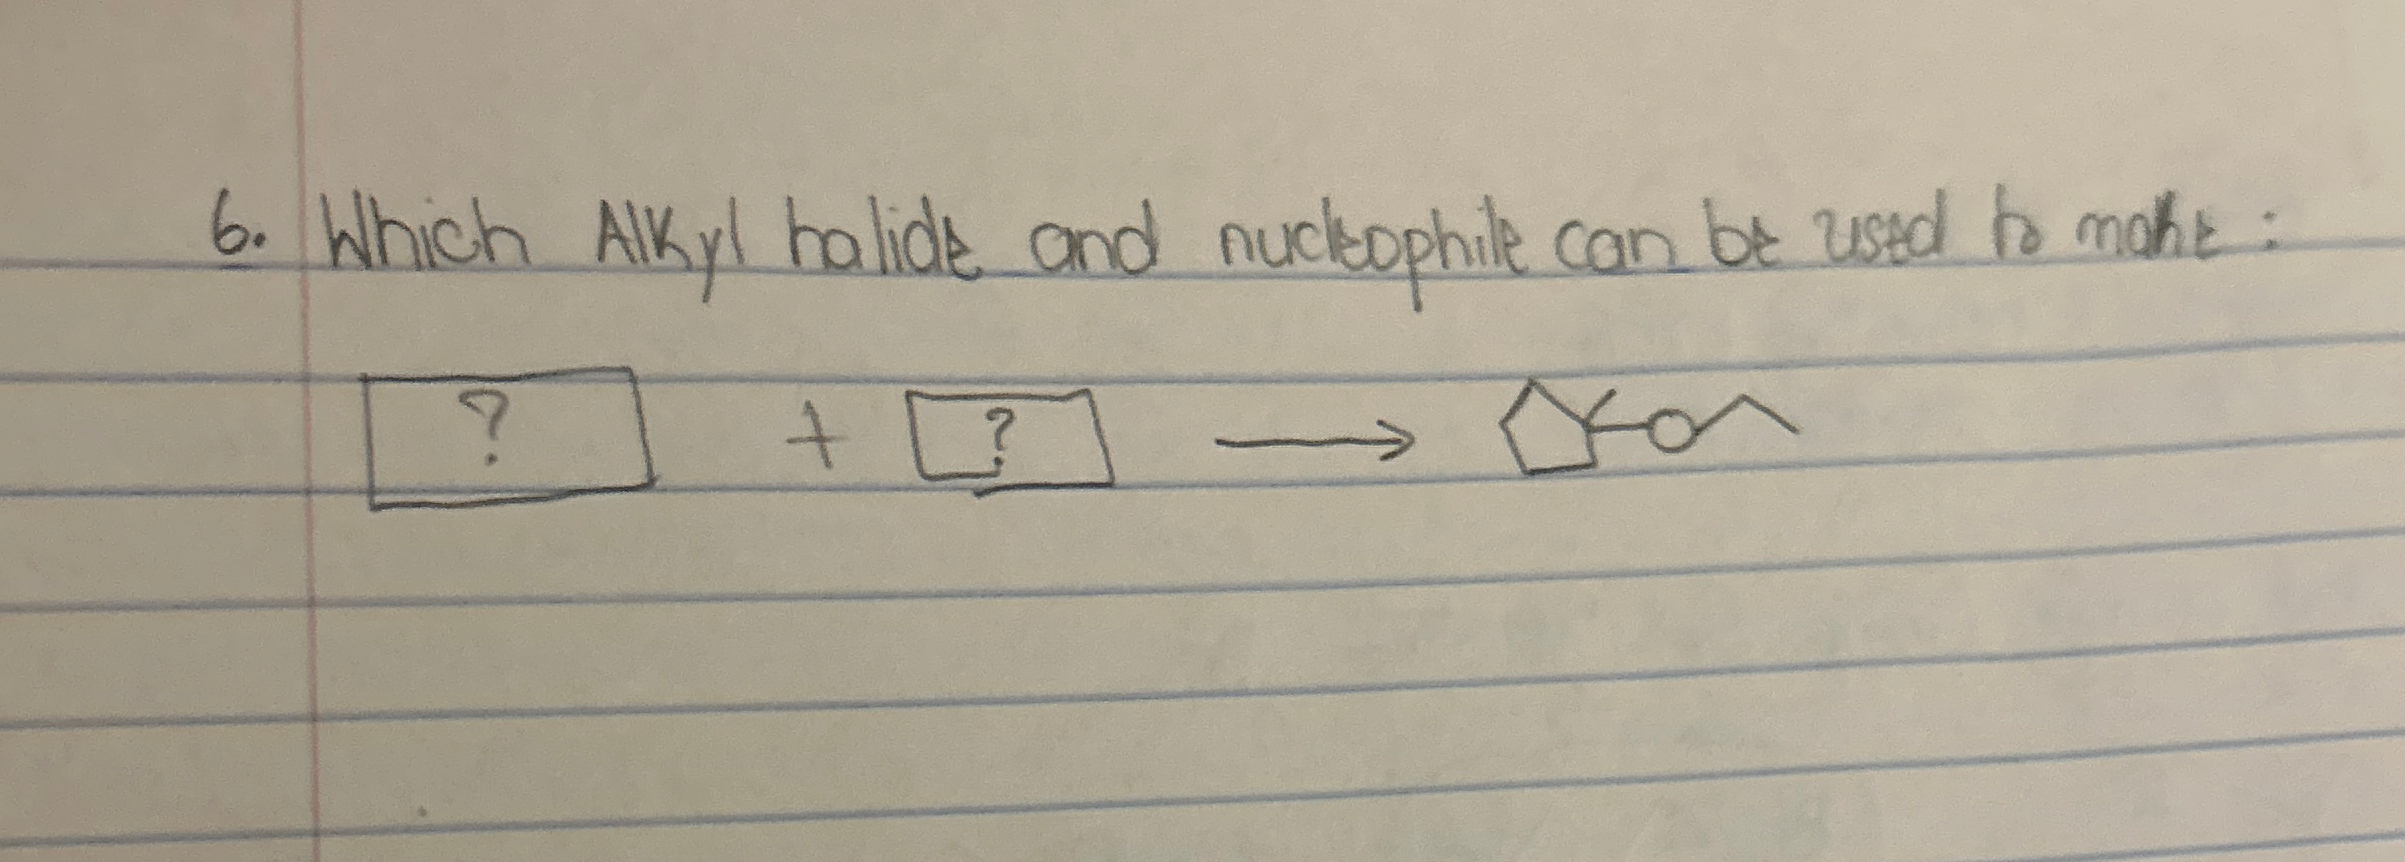 6. Which Alkyl halide and nucleophile can be used to make:
? + ? → O